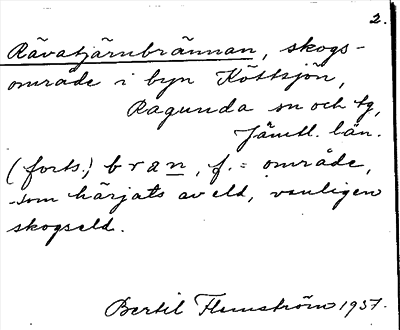 2.
Rävatjärnbrännan, skogs-
område i byn Köttsjön,
Ragunda sn och tg,
Jämtl. län.
(forts.) bran, f. = område,
som härjats av eld, vanligen
skogseld.
Bertil Flemström 1937.